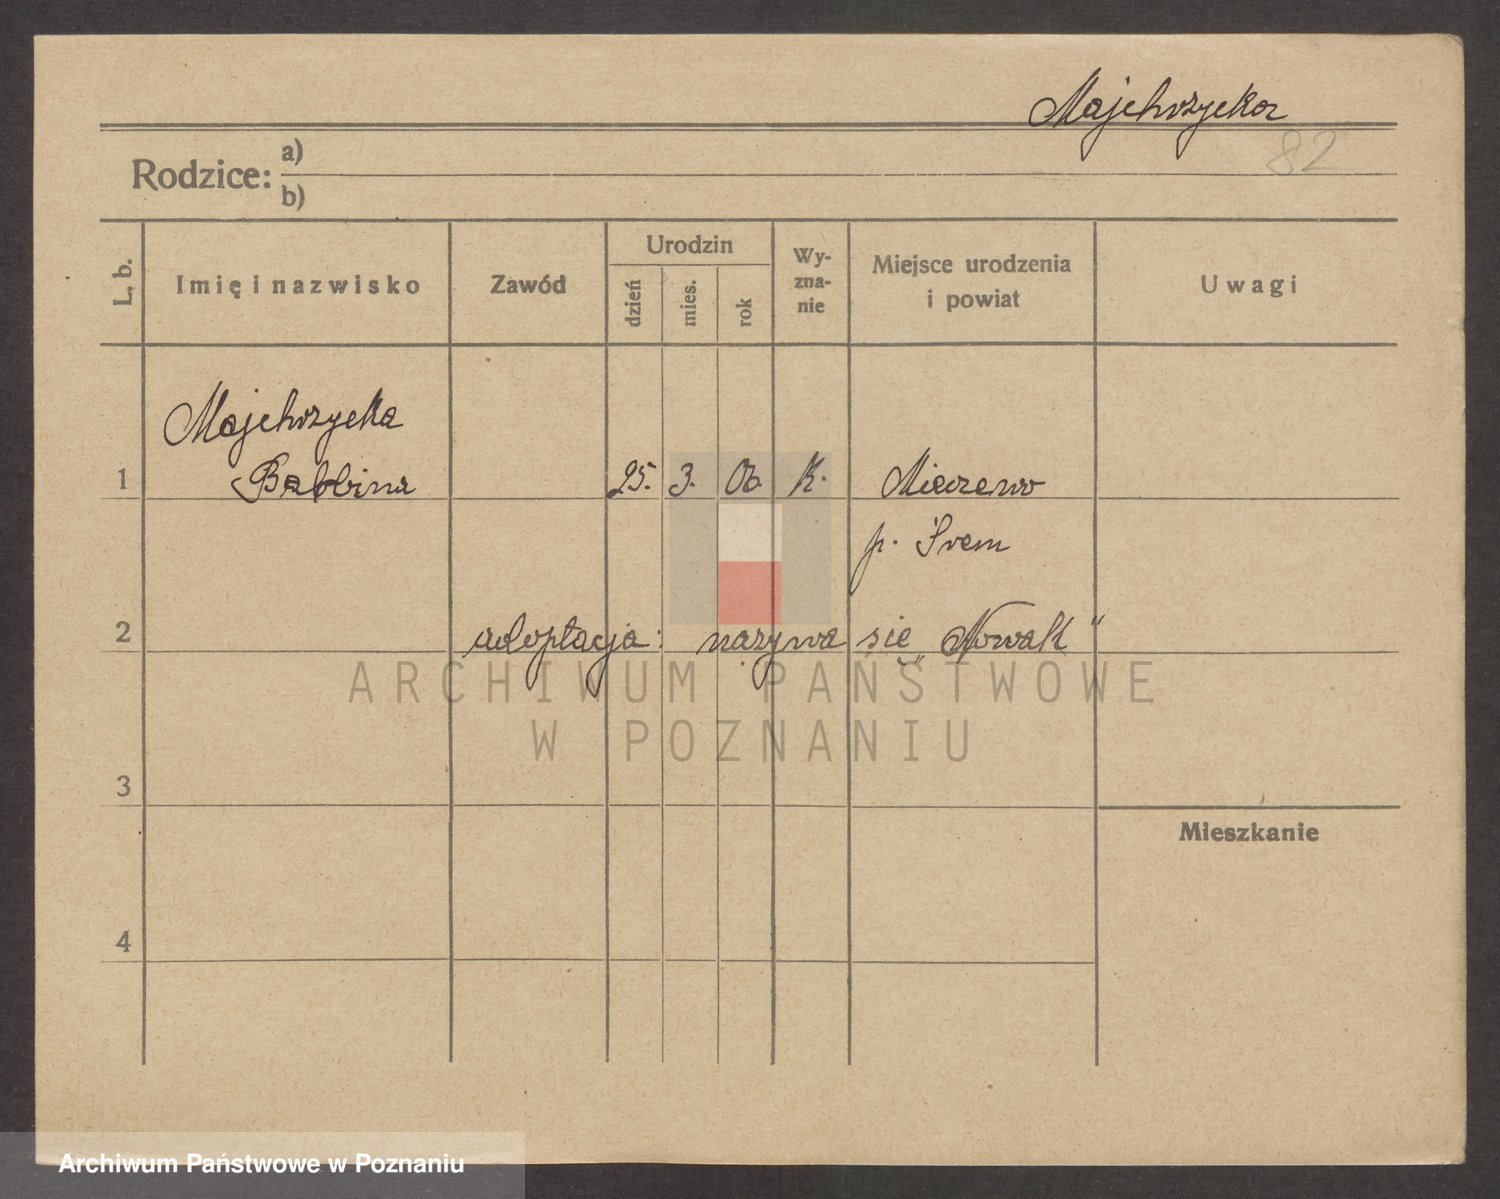 Majchrzycka
82
Rodzice: a)
b)
L. b.
Imię i nazwisko
Zawód
Urodzin
dzień
mies.
rok
Wy-
zna-
nie
Miejsce urodzenia
i powiat
Uwagi
Majchrzycka
1 Balbina 25. 3. 06. K. Mieczewo
p. Śrem
2 adoptacja: nazywa się „Nowak"
ARCHIWUM PAŃSTWOWE
W POZNANIU
3
Mieszkanie
4
Archiwum Państwowe w Poznaniu